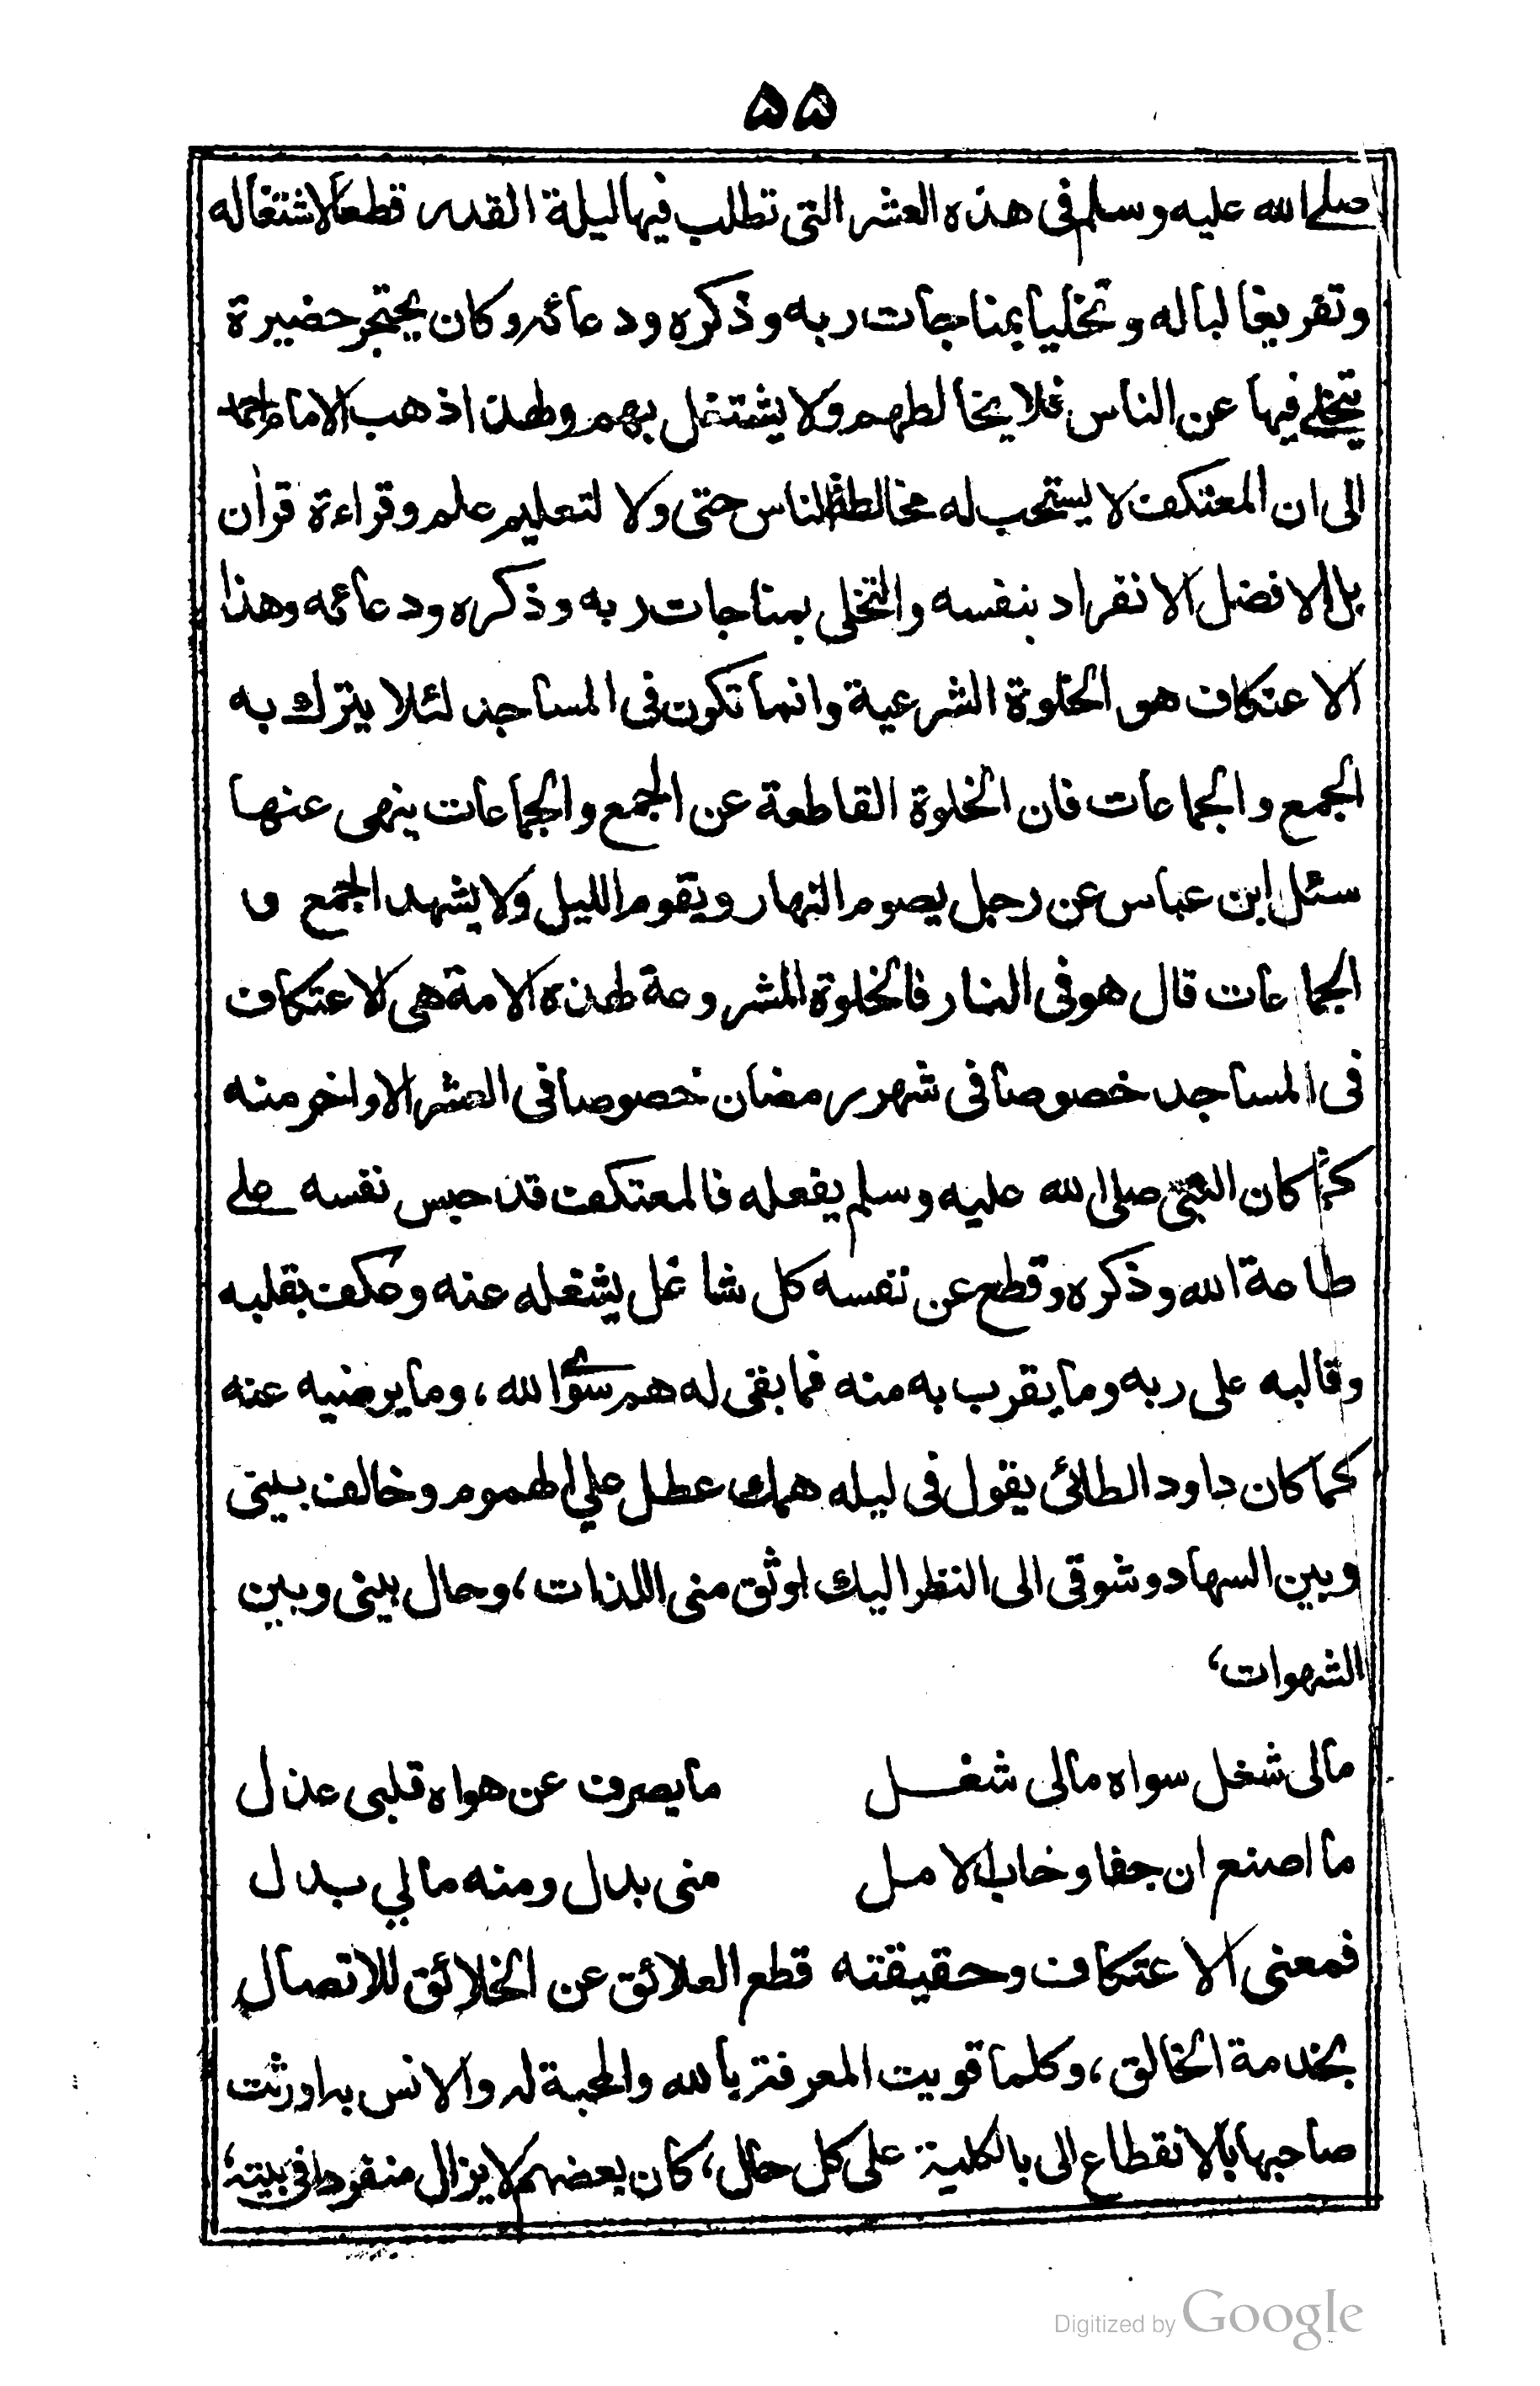 ۵۵
صلے الله عليه وسلم فى هذه العشر التى تطلب فيها ليلة القدر قطعا لاشتغاله
وتفريغا لباله وتخليا بمناجات ربه وذكره ودعائه وكان يحتجر حضيرة
يتخلے فيها عن الناس فلا يخالطهم ولا يشتغل بهم ولهذا ذهب الامام احمد
الى ان المعتكف لا يستحب له مخالطة الناس حتى ولا لتعليم علم وقراءة قرأن
بل الافضل الانفراد بنفسه والتخلى بمناجات ربه وذكره ودعائه وهذا
الاعتكاف هو الخلوة الشرعية وانما تكون فى المساجد لئلا يترك به
الجمع والجماعات فان الخلوة القاطعة عن الجمع والجماعات ينهى عنها
سئل ابن عباس عن رجل يصوم النهار ويقوم الليل ولا يشهد الجمع و
الجماعات قال هو فى النار فالخلوة المشروعة لهذه الامة هى الاعتكاف
فى المساجد خصوصا فى شهر رمضان خصوصا فى العشر الاواخر منه
كما كان النبى صلى الله عليه وسلم يفعله فالمعتكف قد حبس نفسه علے
طاعة الله وذكره وقطع عن نفسه كل شاغل يشغله عنه وعكف بقلبه
وقالبه على ربه وما يقرب به منه فما بقى له هم سوى الله، وما يرضيه عنه
كما كان داود الطائى يقول فى ليله همك عطل علي الهموم وخالف بينى
وبين السهاد وشوقى الى النظر اليك اوثق منى اللذات، وحال بينى وبين
الشهوات،
مالى شغل سواه مالى شغل ما يصرف عن هواه قلبى عذل
ما اصنع ان جفا وخاب الامل منى بدل ومنه مالي بدل
فمعنى الاعتكاف وحقيقته قطع العلائق عن الخلائق للاتصال
بخدمة الخالق، وكلما قويت المعرفة بالله والمحبة له والانس به اورثت
صاحبها بالانقطاع الى بالكلية على كل حال، كان بعضهم لا يزال منفردا فى بيته،
Digitized by Google